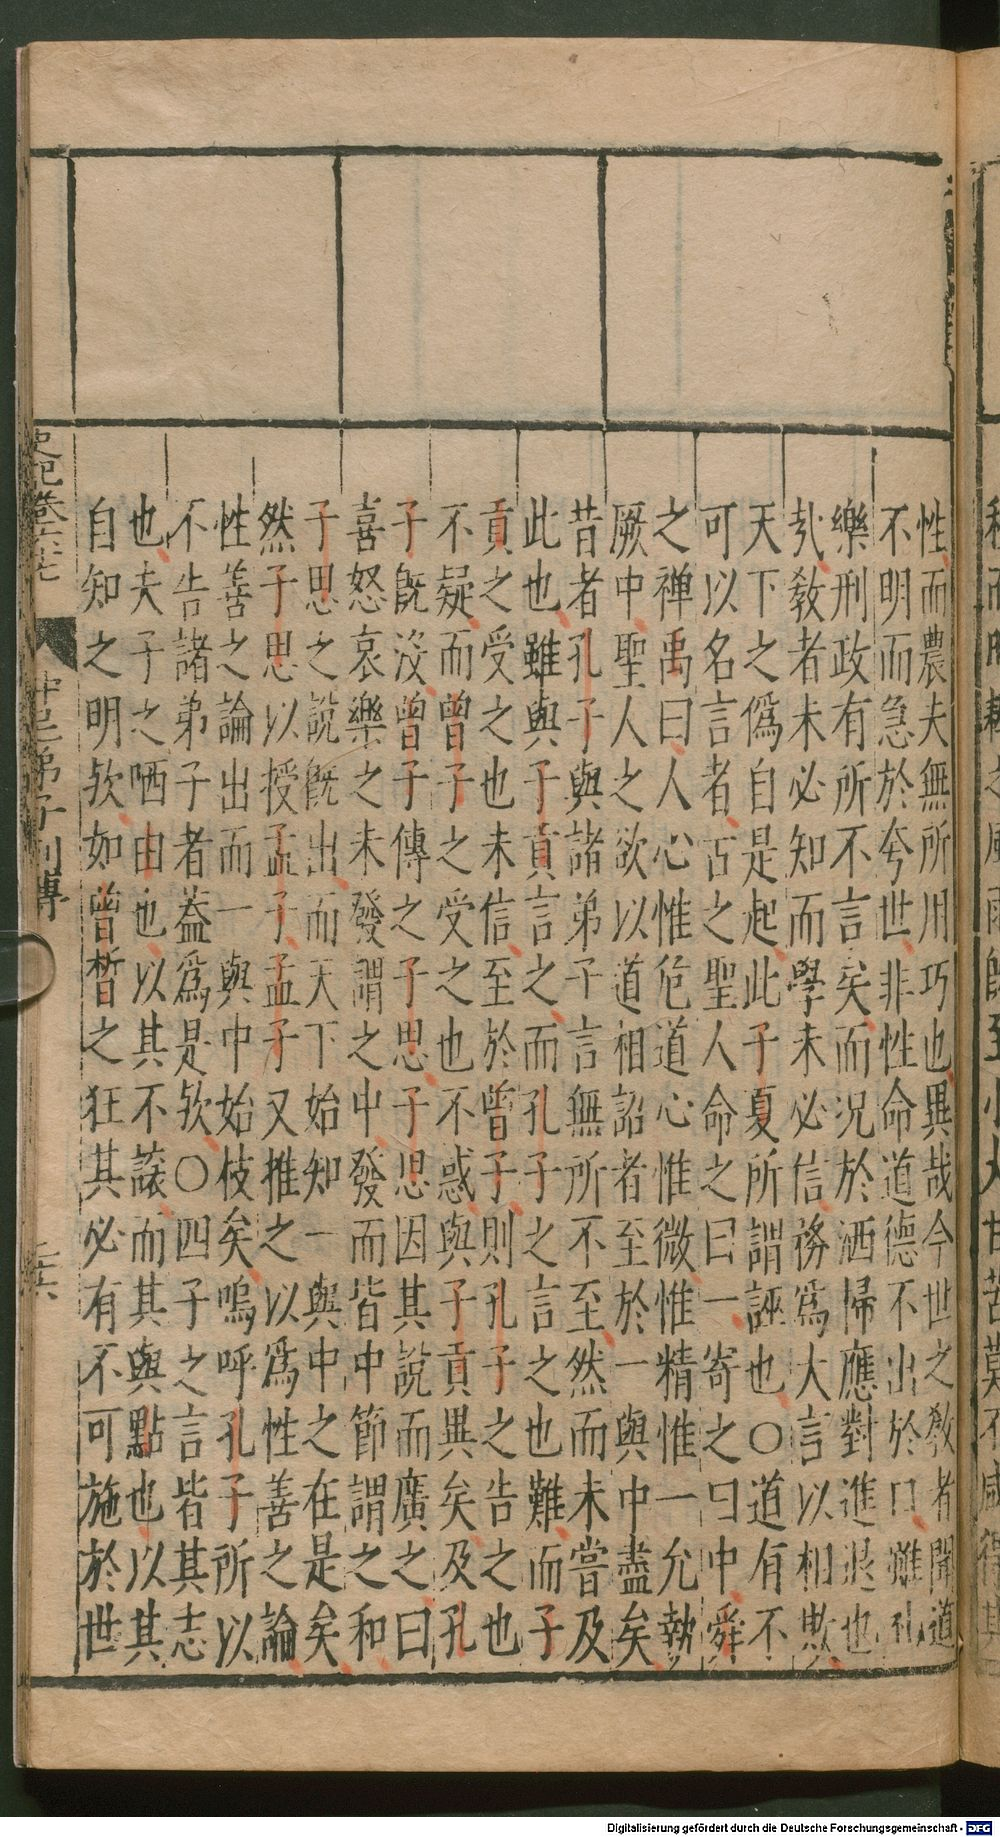 性而農夫無所用巧也異哉今世之教者聞道
不明而急於夸世非性命道德不出於口雖礼
樂刑政有所不言矣而況於洒掃應對進退也
㢤教者未必知而學未必信務爲大言以相欺
天下之僞自是起此子夏所謂誣也〇道有不
可以名言者古之聖人命之曰一寄之曰中舜
之禅禹曰人心惟危道心惟微惟精惟一允執
厥中聖人之欲以道相詔者至於一與中盡矣
昔者孔子與諸弟子言無所不至然而未嘗及
此也雖與子貢言之而孔子之言之也難而子
貢之受之也未信至於曾子則孔子之告之也
不疑而曾子之受之也不惑與子貢異矣及孔
子旣沒曾子傳之子思子思因其說而廣之曰
喜怒哀樂之未發謂之中發而皆中節謂之和
子思之說旣出而天下始知一與中之在是矣
然子思以授孟子孟子又推之以爲性善之論
性善之論出而一與中始枝矣嗚呼孔子所以
不告諸弟子者葢爲是欤〇四子之言皆其志
也夫子之哂由也以其不讓而其與點也以其
自知之明欤如曾晳之狂其必有不可施於世
史記卷六十七
仲尼弟子列傳
Digitalisierung gefördert durch die Deutsche Forschungsgemeinschaft - DFG